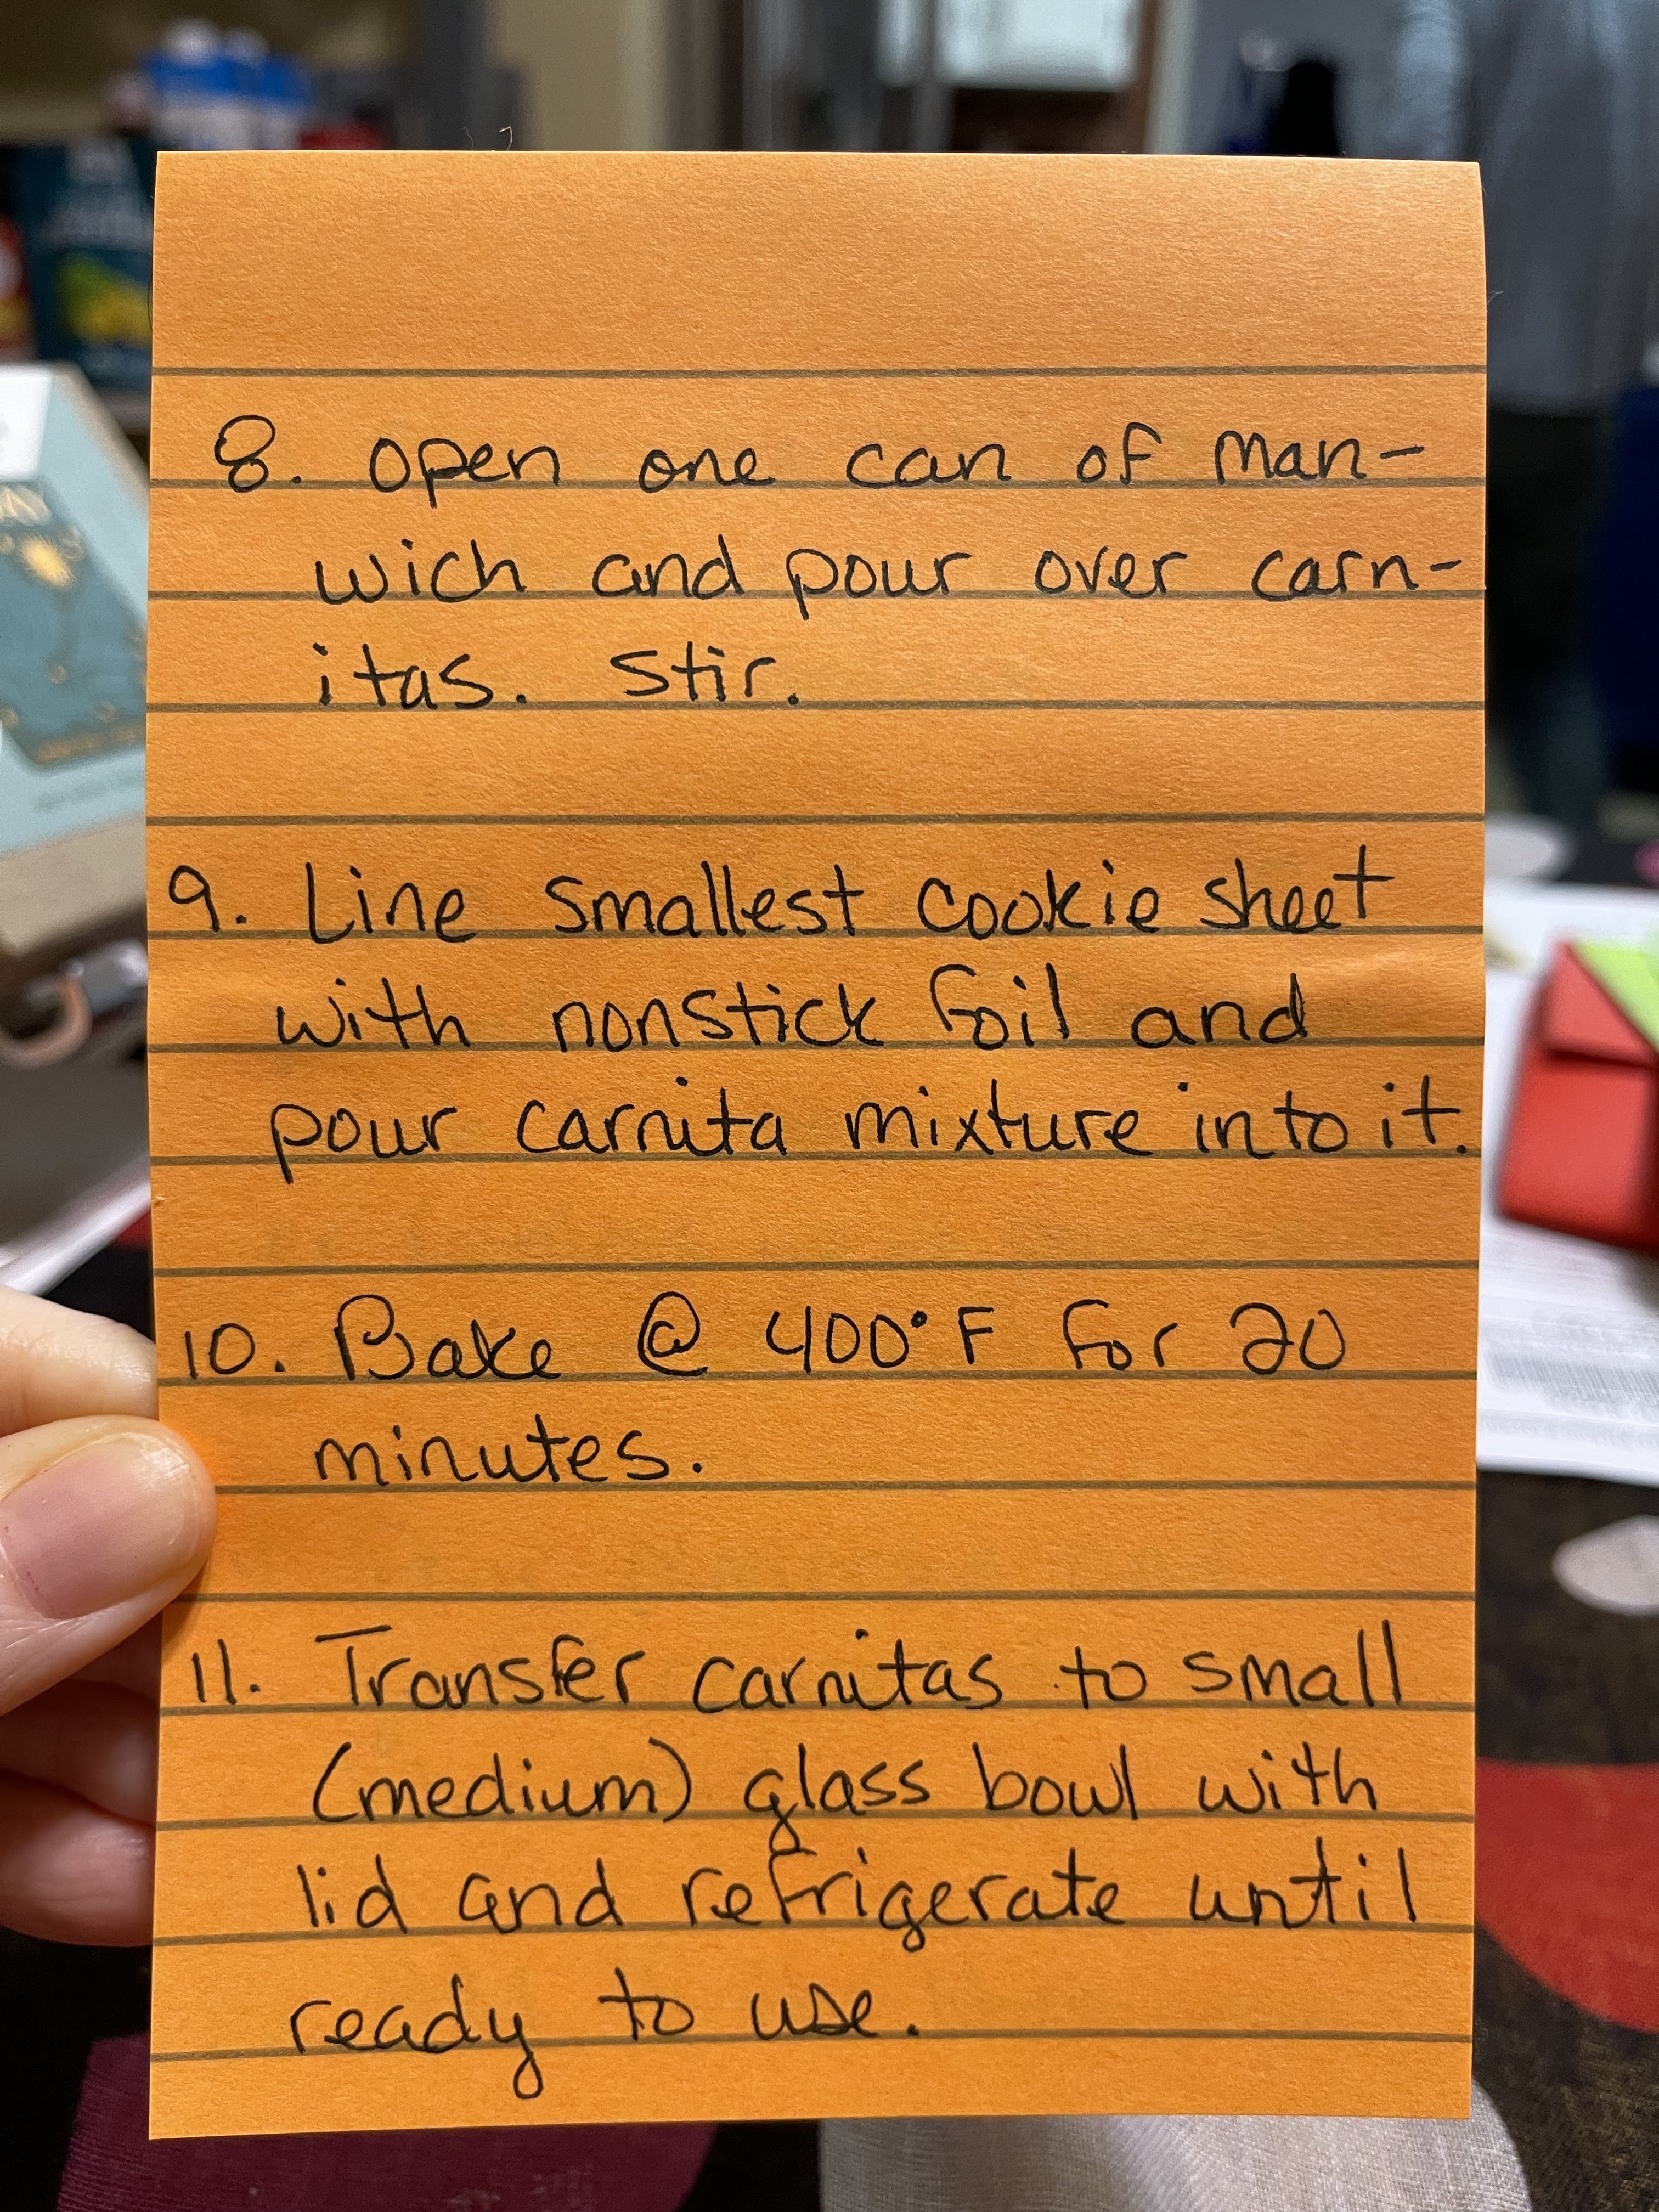 8. Open one can of Man-
wich and pour over carn-
itas. Stir.
9. Line smallest cookie sheet
with nonstick foil and
pour carnita mixture into it.
10. Bake @ 400°F for 20
minutes.
11. Transfer carnitas to small
(medium) glass bowl with
lid and refrigerate until
ready to use.